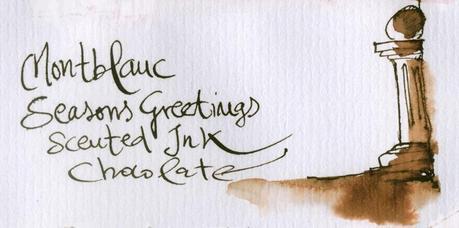 Montblanc
Seasons Greetings
Scented Ink
Chocolate